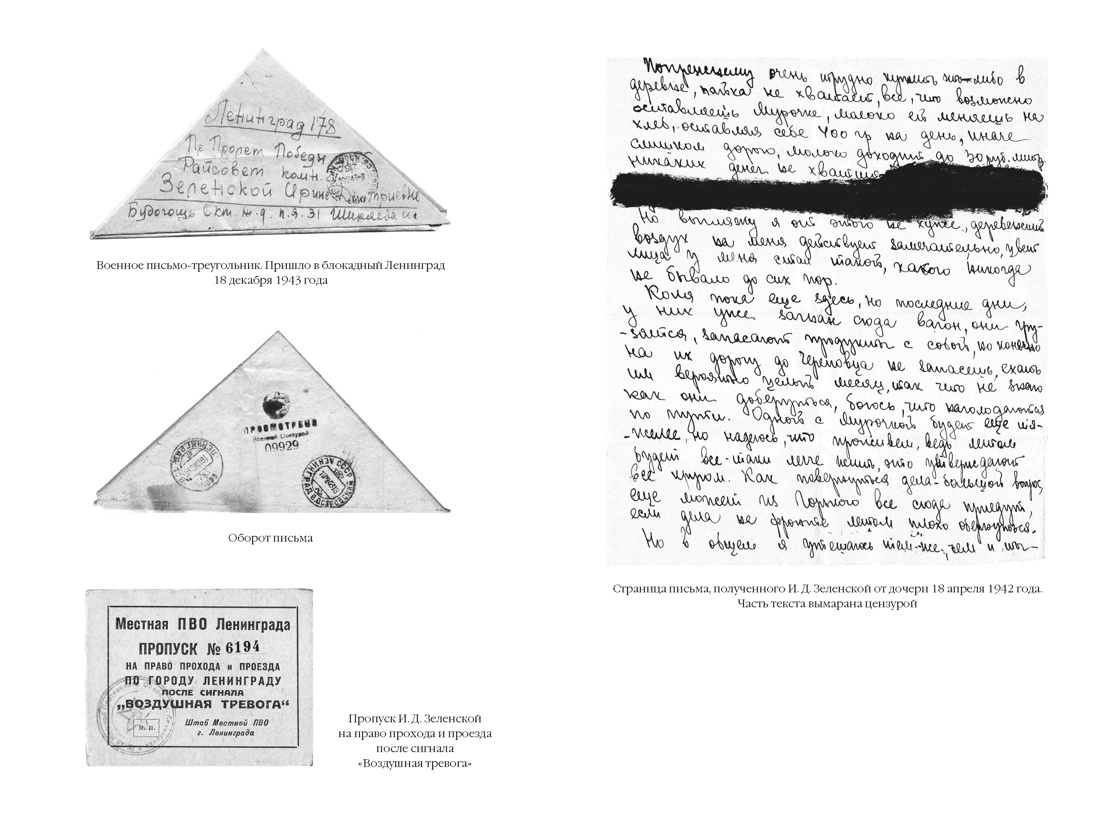 Ленинград 178
Пр Пролет Победы
Райсовет комн.
Зеленской Ирине Дмитриевне
Будогощь Окт. ж.д. п.я. 31 Ширяева
Военное письмо-треугольник. Пришло в блокадный Ленинград
18 декабря 1943 года
ПРОСМОТРЕНО
Военной Цензурой
09929
Оборот письма
Местная ПВО Ленинграда
ПРОПУСК № 6194
НА ПРАВО ПРОХОДА и ПРОЕЗДА
ПО ГОРОДУ ЛЕНИНГРАДУ
ПОСЛЕ СИГНАЛА
„ВОЗДУШНАЯ ТРЕВОГА“
М. П.
Штаб Местной ПВО
г. Ленинграда
Пропуск И. Д. Зеленской
на право прохода и проезда
после сигнала
«Воздушная тревога»
Попрежнему очень трудно купить что-либо в
деревне, пайка не хватает, все, что возможно
оставляешь Мурочке, молоко ей меняешь на
хлеб, оставляя себе 400 гр на день, иначе
слишком дорого, молоко доходит до 30 руб. литр
никаких денег не хватит
Но выгляжу я от этого не хуже, деревенский
воздух на меня действует замечательно, цвет
лица у меня стал такой, какого никогда
не бывало до сих пор.
Коля пока еще здесь, но последние дни,
у них уже загнан сюда вагон, они гру-
-зятся, запасают продукты с собой, но конечно
на их дорогу до Череповца не запасешь, ехать
им вероятно целый месяц, так что не знаю
как они доберутся, боюсь, что наголодаются
по пути. Одной с Мурочкой будет еще тя-
-желее, но надеюсь, что проживем, ведь летом
будет все-таки легче жить, это утверждают
все кругом. Как повернутся дела-большой вопрос,
еще может из Горного все сюда приедут,
если дела на фронте летом плохо обернутся.
Но в общем я утешаюсь тем-же, чем и
Страница письма, полученного И. Д. Зеленской от дочери 18 апреля 1942 года.
Часть текста вымарана цензурой